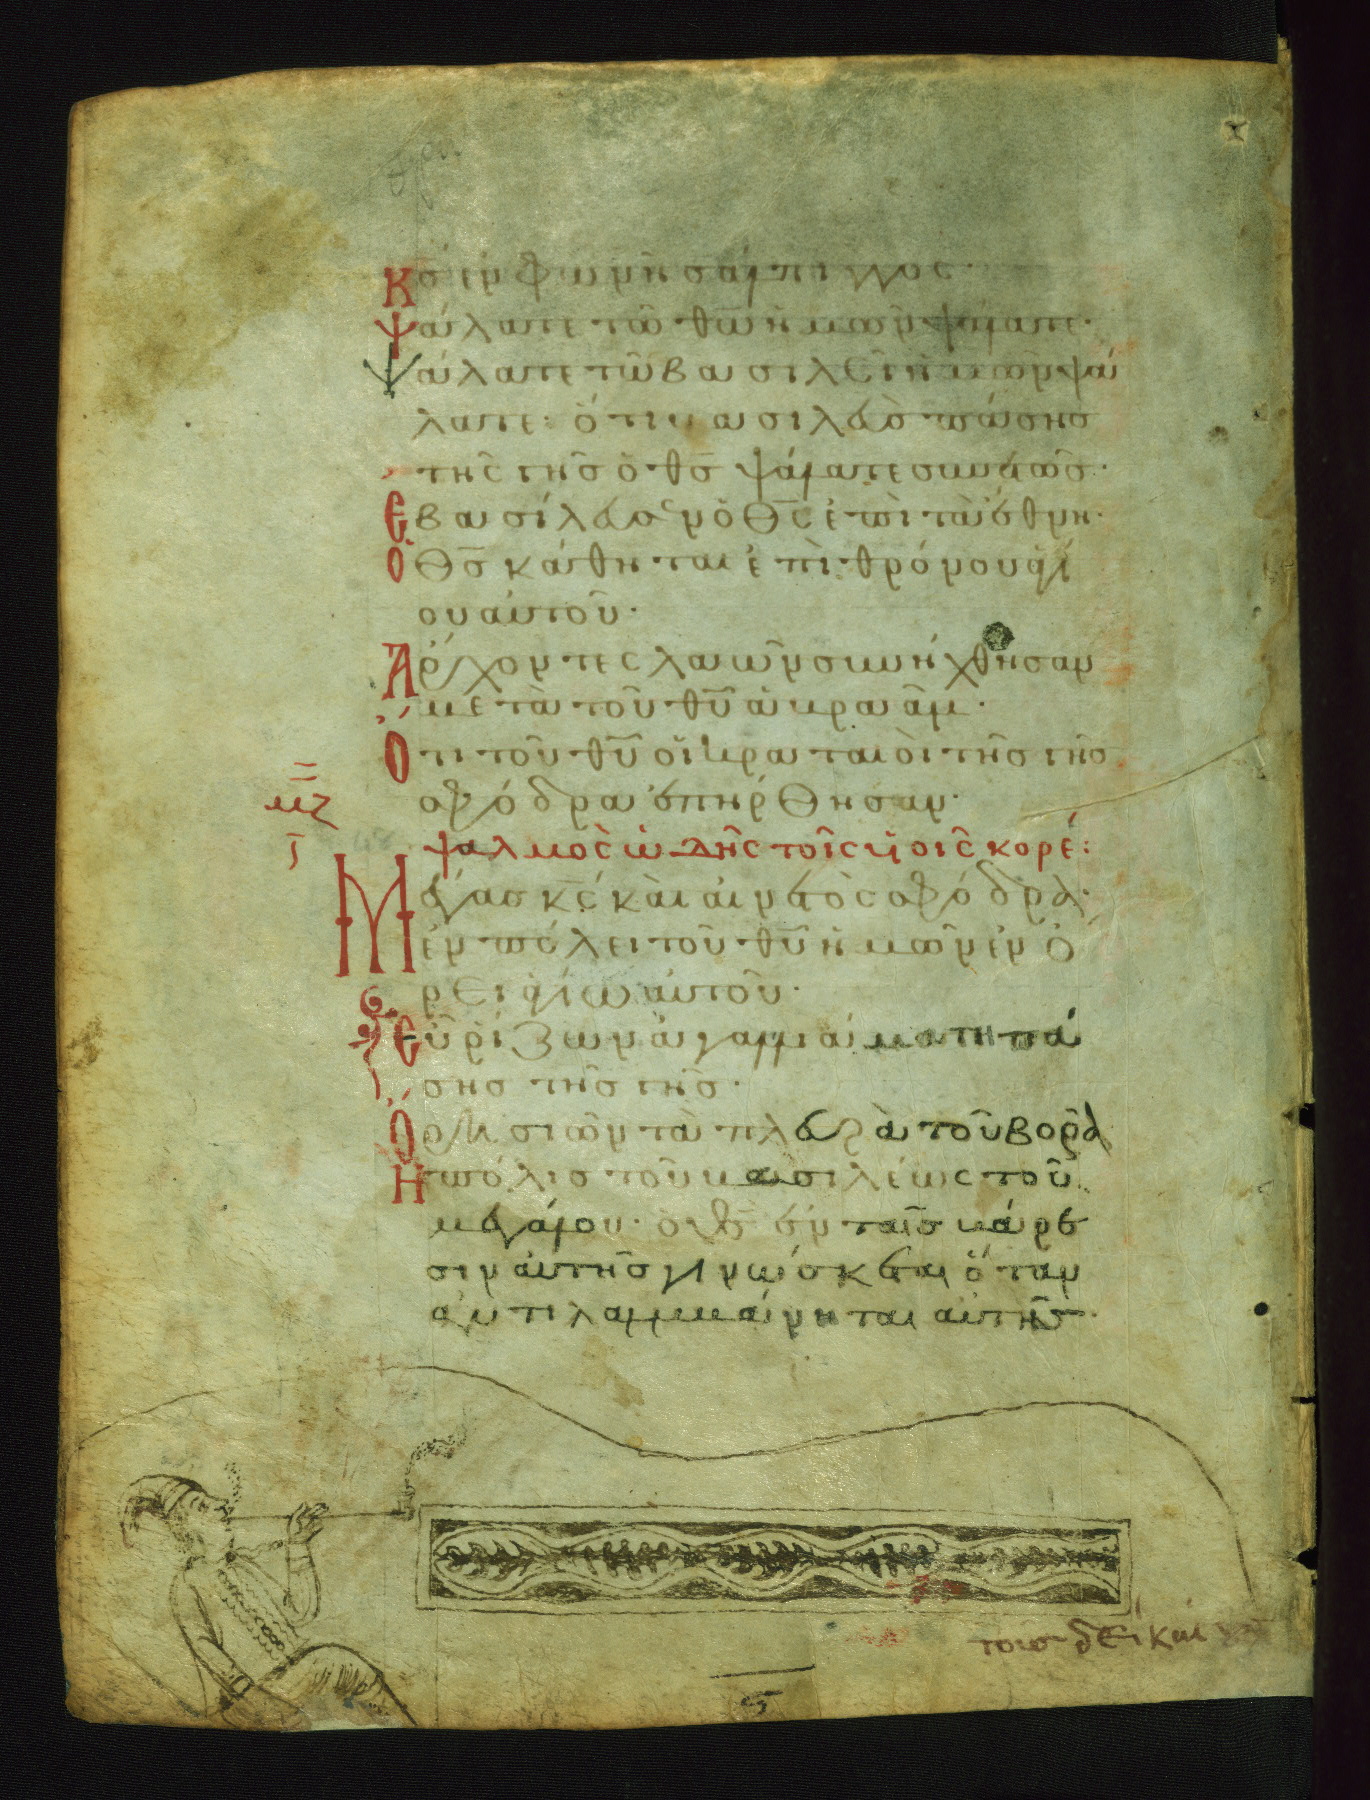 Κς ἐν φωνῆ σάλπιγγος·
Ψάλατε τῶ θῶ ἡμῶν ψάλατε·
Ψάλατε τῶ βασιλεῖ ἡμῶν ψά
λατε: ὅτι βασιλεὺς πάσης
τῆς γῆς ὁ θς ψάλατε συνετῶς·
Ἐβασίλευσεν ὁ Θς ἐπὶ τὰ ἔθνη·
Ὁ Θς κάθηται ἐπὶ θρόνου ἁγί
ου αὐτοῦ·
Ἄρχοντες λαῶν συνήχθησαν
μετὰ τοῦ θῦ ἀβραάμ·
Ὅτι τοῦ θῦ οἱ κραταιοὶ τῆς γῆς
σφόδρα ἐπήρθησαν·
μζ
ψαλμὸς ὠδῆς τοῖς υἱοῖς κορέ:
Μέγας κς καὶ αἰνετὸς σφόδρα·
ἐν πόλει τοῦ θῦ ἡμῶν ἐν ὄ
ρει ἁγίω αὐτοῦ·
Εὐρίζων ἀγαλλιάματι πά
σης τῆς γῆς·
Ὄρη σιὼν τὰ πλευρὰ τοῦ βορρᾶ
Ἡ πόλις τοῦ βασιλέως τοῦ
μεγάλου· ὁ θς ἐν ταῖς βάρε
σιν αὐτῆς γινώσκεται ὅταν
ἀντιλαμβάνηται αὐτῆς·
τοις δεί και